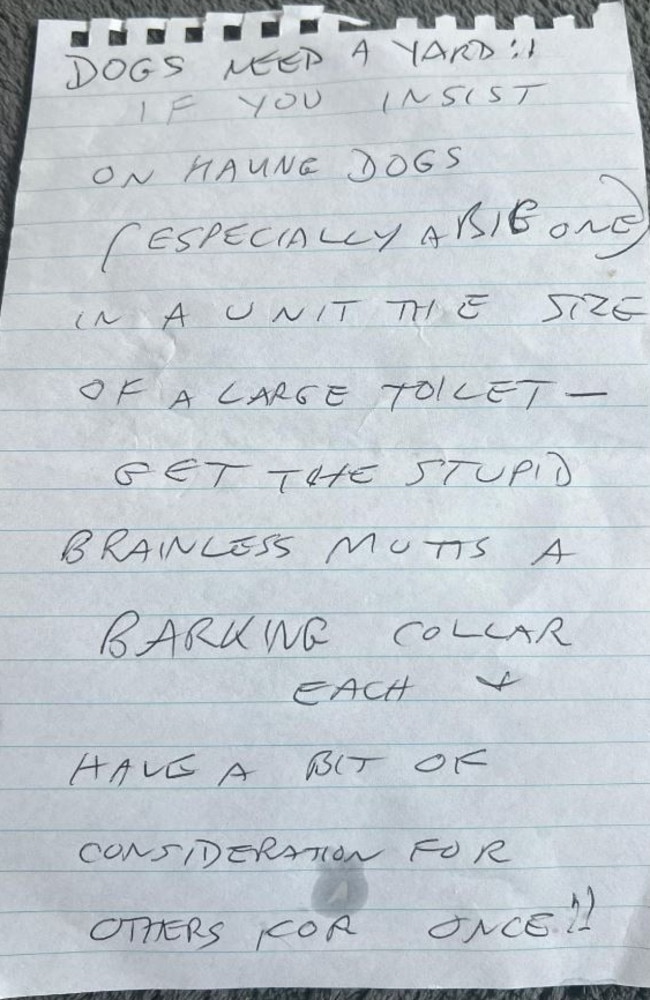 DOGS NEED A YARD!!
IF YOU INSIST
ON HAVING DOGS
(ESPECIALLY A BIG ONE)
IN A UNIT THE SIZE
OF A LARGE TOILET —
GET THE STUPID
BRAINLESS MUTTS A
BARKING COLLAR
EACH +
HAVE A BIT OF
CONSIDERATION FOR
OTHERS FOR ONCE!!